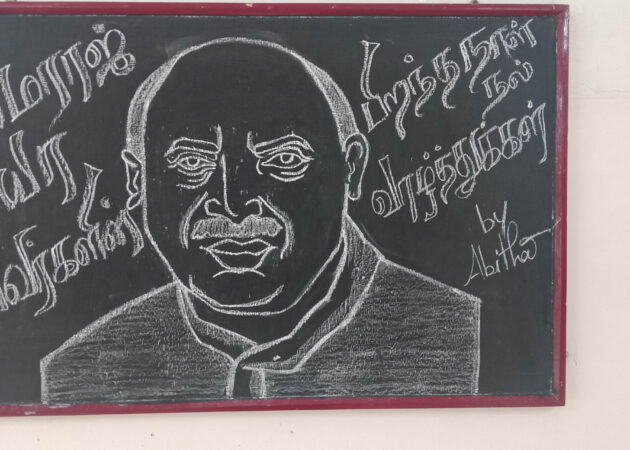 மராஜ்
யா
வர்களின்
பிறந்தநாள்
நல்
வாழ்த்துக்கள்
by
Abitha